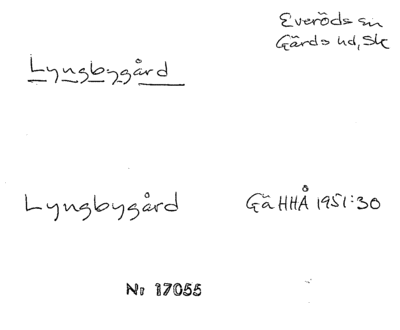 Everöds sn
Gärds hd, Sk
Lyngbygård
Lyngbygård GäHHÅ 1951:30
Nr 17055